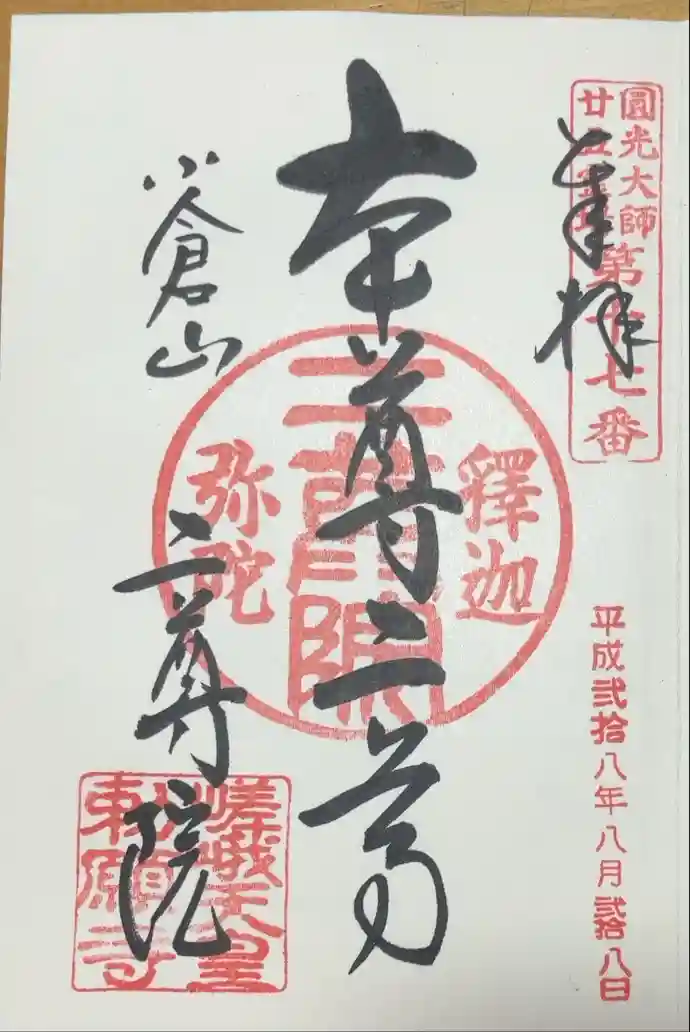 圓光大師
廿五霊場
第十七番
奉拝
平成弐拾八年八月弐拾八日
本尊二尊
釋迦
二尊院
弥陀
小倉山
二尊院
嵯峨天皇
勅願寺